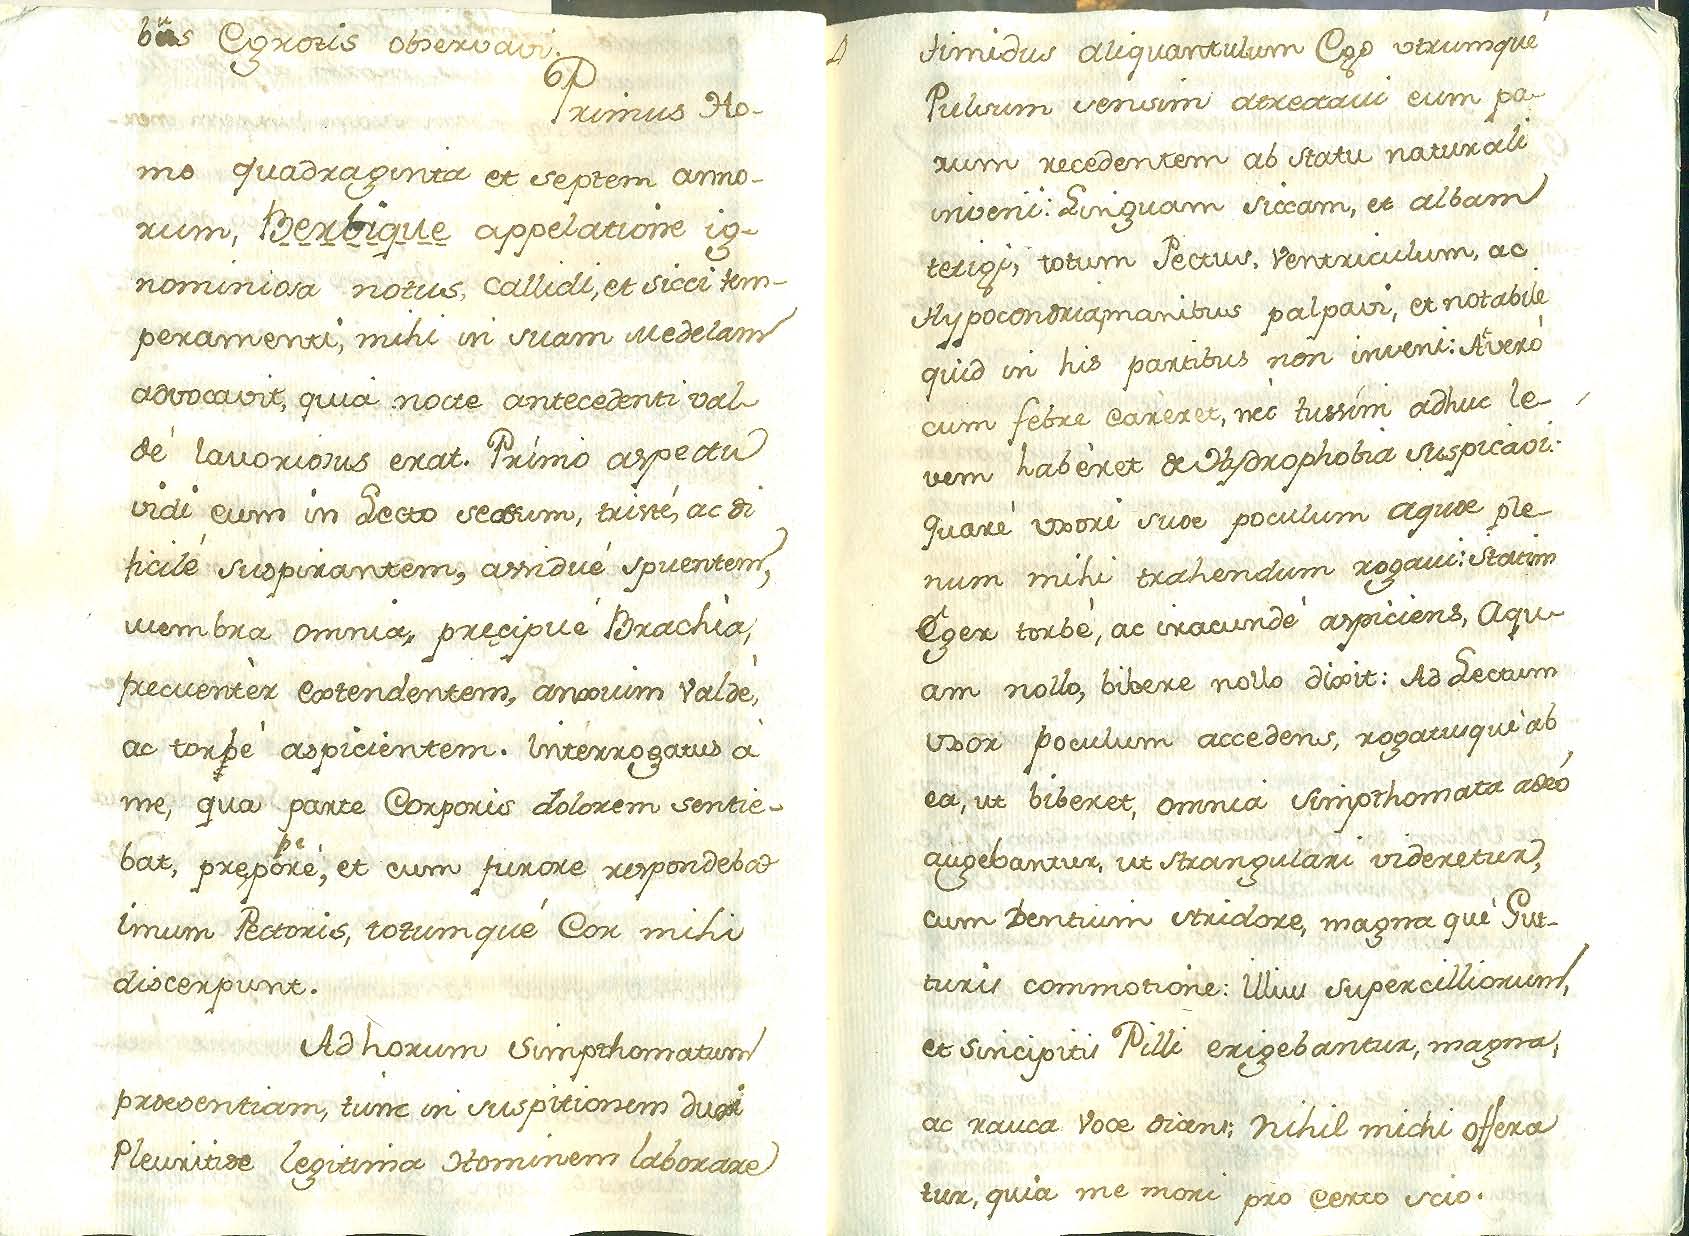 bus Egrotis observavi.
Primus Ho-
mo quadraginta et septem anno-
rum, Berbique appelatione ig-
nominiosa notus, callidi, et sicci tem-
peramenti, mihi in suam medelam
advocavit, quia nocte antecedenti val-
dé laboriosus erat. Primo aspectu
vidi eum in Lecto sectum, tristé, ac di
ficilé suspirantem, assidué spuentem,
membra omnia, preçipué Brachia,
frecuentèr extendentem, anxium valdè,
ac torbé aspicientem. Intèrrogatus à
me, qua parte Corporis dolorem sentie-
bat, prepore, et cum furore respondebat
imum Pectoris, totumqué Cor mihi
discerpunt.
Ad horum Simpthomatum
praesentiam, tunc in suspitionem duxi
Pleuritide legitima Hominem laborare
4
timidus aliquantulum Ego utrumqué
Pulsum sensim atrectavi eum pa-
rum recedentem ab statu naturali
inveni: Linguam siccam, et albam
terigi, totum Pectus, Ventriculum, ac
Hypocondria manibus palpavi, et notabile
quid in his partibus non inveni: At veró
cum febre careret, nèc tussim adhuc le-
vem habèret de Hydrophobia suspicavi:
Quaré uxori suae poculum aquae ple-
num mihi trahendum rogavi: Statim
Eger torbé, ac iracundé aspiciens, Aqu-
am nollo, bibere nollo dixit: Ad Lectum
uxor poculum accedens, rogatusquè ab
ea, ut biberet, omnia simpthomata adeó
augebantur, ut strangulari videretur,
cum Dentium stridore, magna què Gut-
turis commotione: illius supercilliorum,
et Sincipitis Pilli erigebantur, magna,
ac rauca voce dicens: Nihil michi offera
tur, quia me mori pro certo scio.